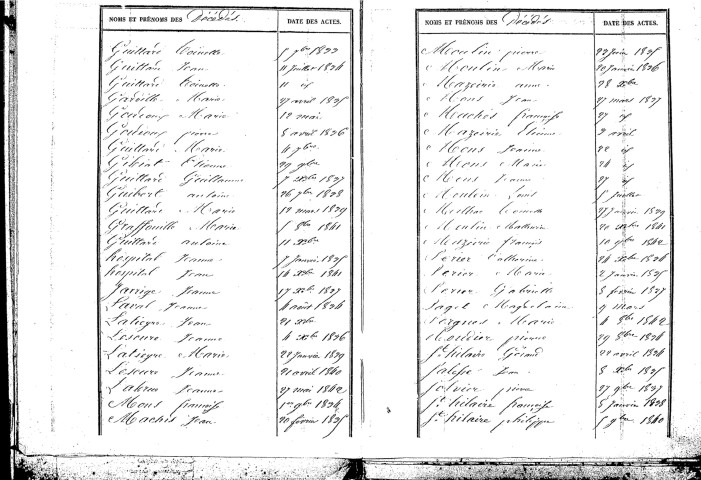 NOMS ET PRÉNOMS DES Décédés. DATE DES ACTES.
Guittard Toinette 5 7bre 1833
Guittard Jean 11 Juillet 1834
Guittard Toinette 11 id
Marie 27 avril 1835
Marie 12 mai
pierre 5 avril 1836
Guittard Marie 4 7bre
Etienne 29 9bre
Guittard Guillaume 7 Xbre 1837
Guibert antoine 26 7bre 1838
Guittard Marie 12 mars 1839
Graffouille Maria 5 8bre 1841
Guittard antoine 11 Xbre
hospital Jeanne 7 Janvier 1835
hospital Jean 14 Xbre 1841
Jarrige Jeanne 17 Xbre 1837
Laval Jeanne 4 août 1834
Jean 21 Xbre
Lescure Jeanne 4 Xbre 1836
Marie 22 Janvier 1839
Lescure Jeanne 21 avril 1840
Jeanne 27 mai 1842
Mons françoise 1er 9bre 1834
Maches Jean 20 fevrier 1835
NOMS ET PRÉNOMS DES Décédés DATE DES ACTES.
Moulin pierre 22 Juin 1835
Moulin Marie 20 Janvier 1836
Mazeirie anne 28 Xbre
Mons Jean 27 mars 1837
Maches françoise 27 id
Mazeirie Etienne 2 avril
Mons Jeanne 22 id
Mons Marie 24 id
Mons Jeanne 27 id
Moulin Louis 5 Juillet
Toinette 27 Janvier 1839
Moulin Mathurin 20 Xbre 1841
Mazeirie françois 10 9bre 1842
Nerier Catherine 24 Xbre 1834
Nerier Marie 2 Janvier 1835
Nerier Gabrielle 3 fevrier 1837
Magdelaine 9 mars
Marie 4 8bre 1842
pierre 29 8bre 1834
St hilaire Géraud 22 avril 1834
Jean 8 Xbre 1835
pierre 27 9bre 1837
St hilaire françoise 5 Janvier 1838
St hilaire philippe 5 9bre 1840